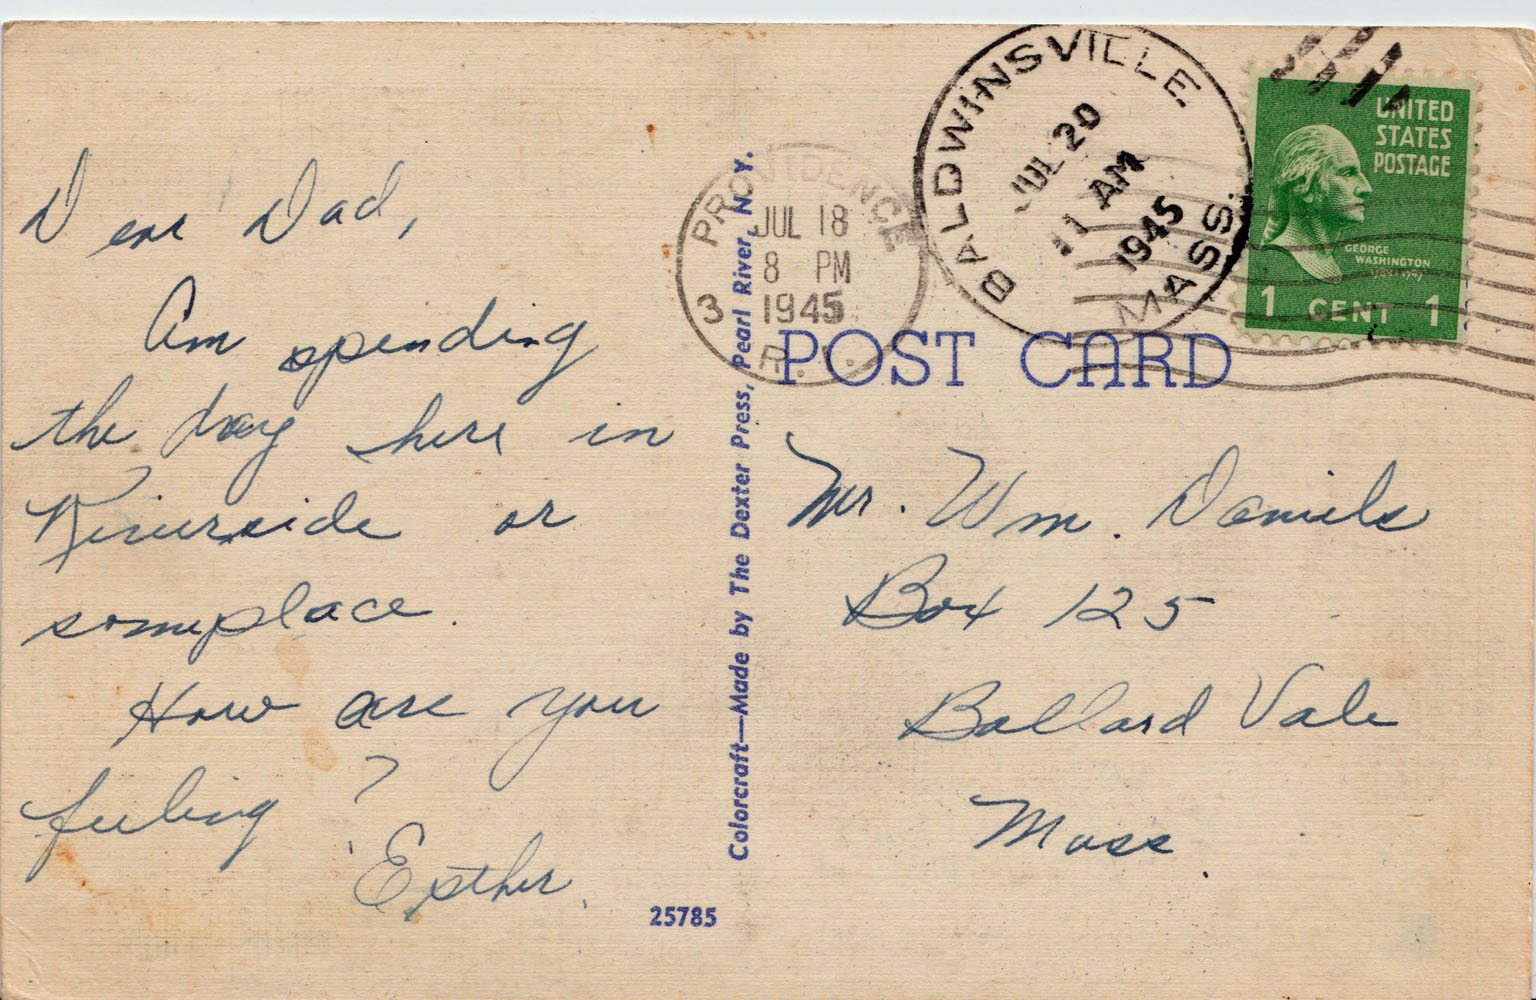 Dear Dad,
Am spending
the day here in
Riverside or
someplace.
How are you
feeling?
Esther.
25785
Colorcraft—Made by The Dexter Press, Pearl River, N.Y.
PROVIDENCE
JUL 18
8 PM
3 1945
R. I.
BALDWINSVILLE.
JUL 20
11 AM
1945
MASS.
UNITED
STATES
POSTAGE
GEORGE
WASHINGTON
1 CENT 1
POST CARD
Mr. Wm. Daniels
Box 125
Ballard Vale
Mass